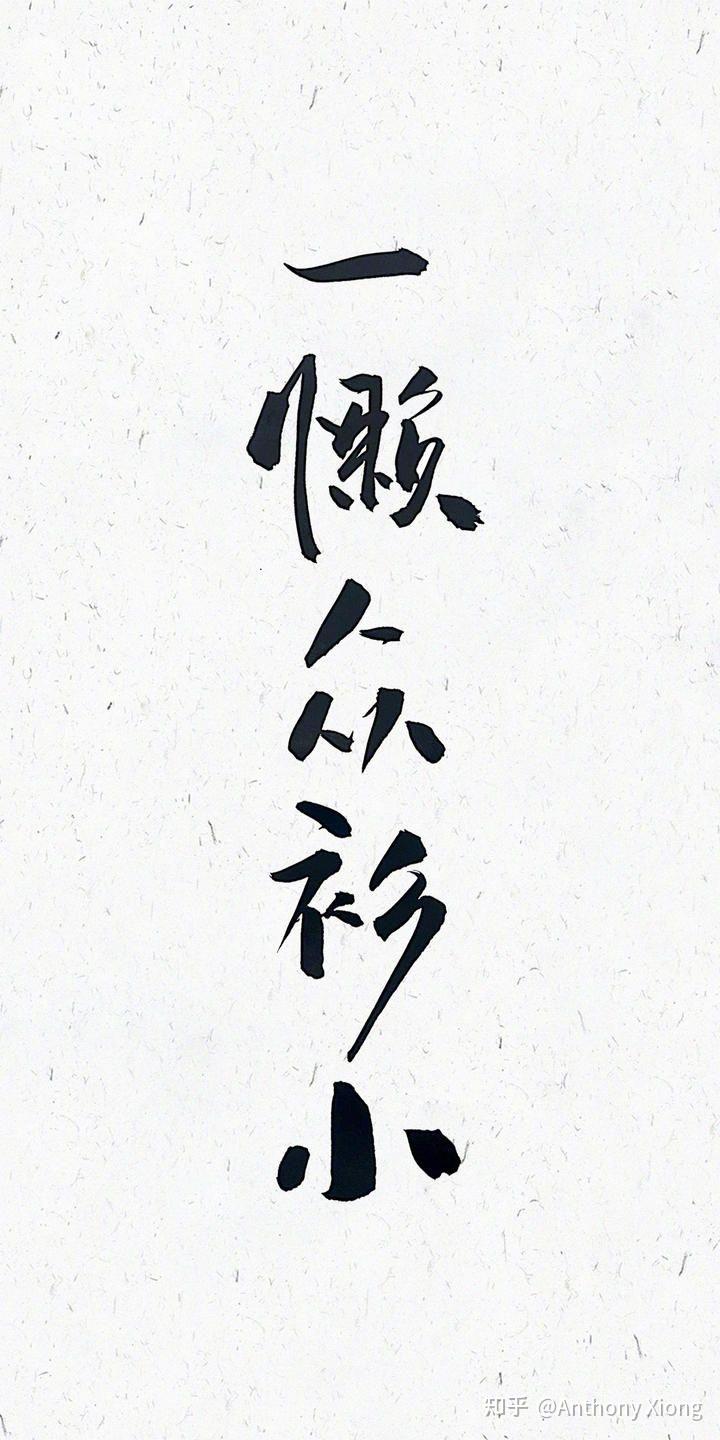 一懒众衫小
知乎 @Anthony Xiong